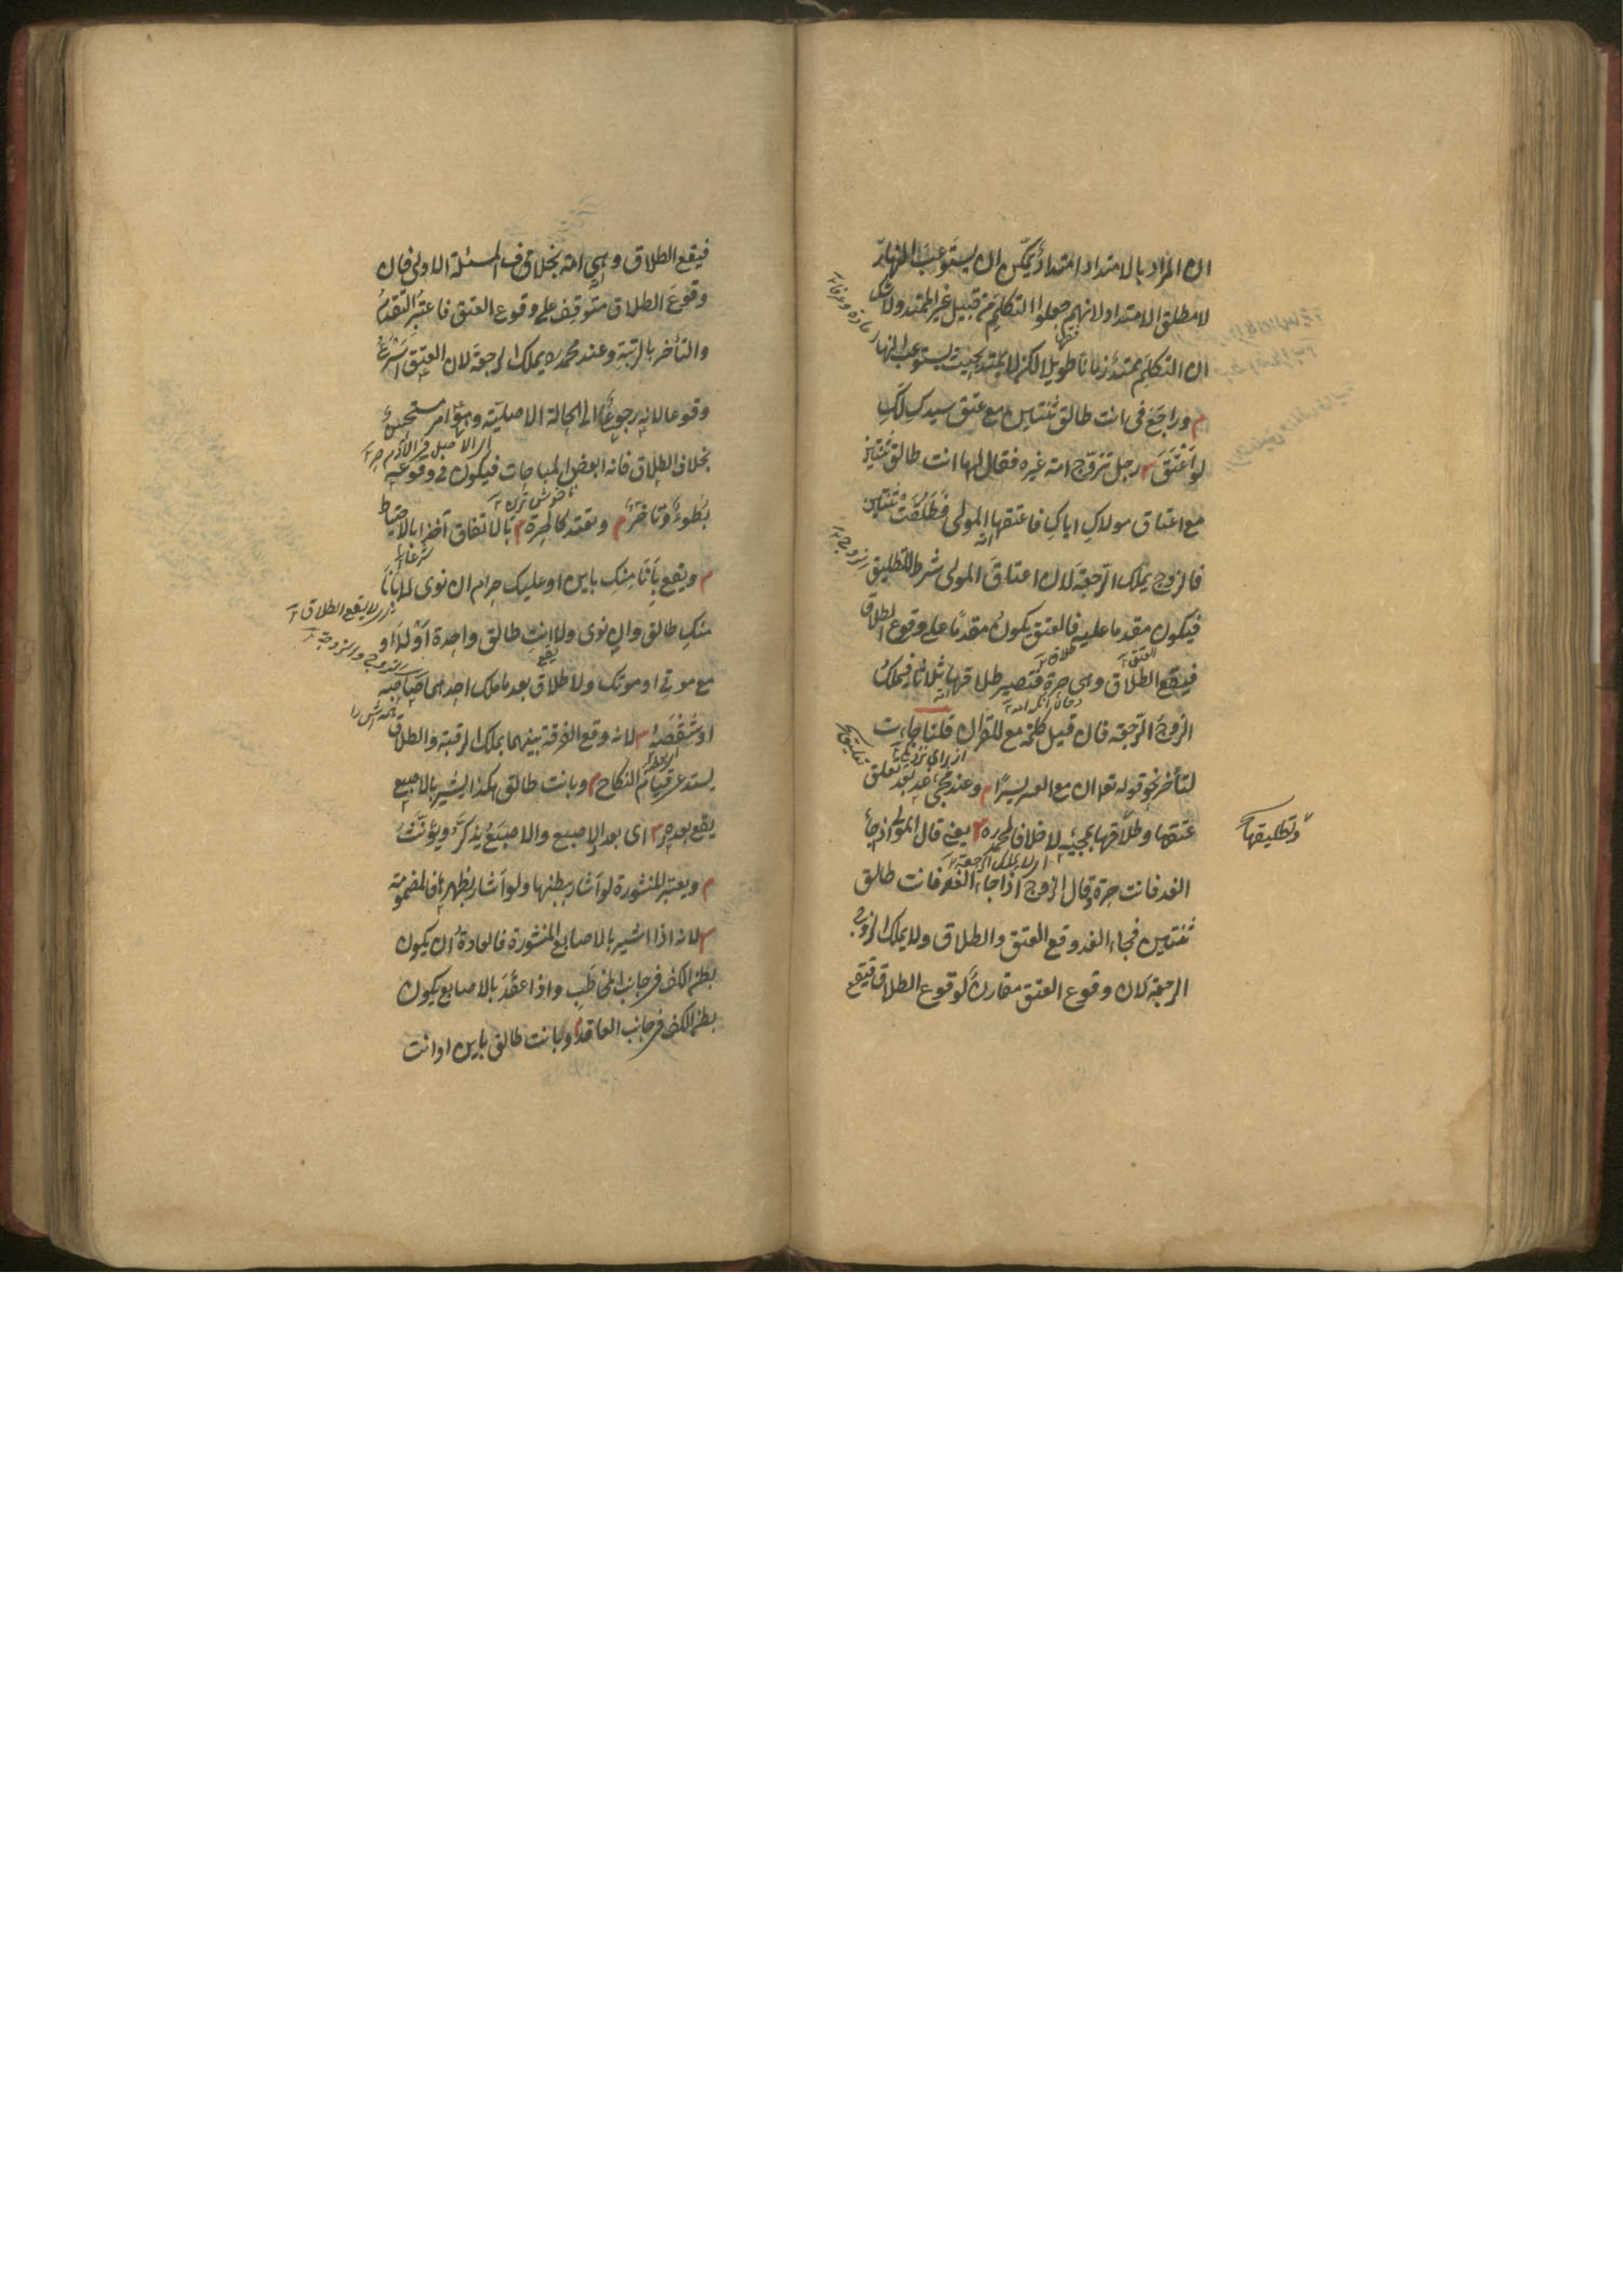 ان المراد بالامتداد امتداد يمكن ان يستوعب النهار
لا مطلق الامتداد لانهم جعلوا التكلم من قبيل غير الممتد ولا شك
ان التكلم يمتد زمانا طويلا لكن لا يمتد بحيث يستوعب النهار
م وراجع فى انت طالق ثنتين مع عتق سيدك لك
لو اعتق رجل تزوج امة غيره فقال لها انت طالق ثنتين
مع اعتاق مولاك اياك فاعتقها المولى فطلقت ثنتين
فالزوج يملك الرجعة لان اعتاق المولى شرط للتطليق
فيكون مقدما عليه فالعتق يكون مقدما على وقوع الطلاق
فيقع الطلاق وهى حرة فتصير طلاقها ثلاثا فيملك
الزوج الرجعة فان قيل كلمة مع للقران قلنا جاءت
لتأخر نحو قوله تعا ان مع العسر يسرا م وعند مجئ غد بعد تعلق
عتقها وطلاقها بمجيئه لا خلافا لمحمد ره يعنى قال المولى اذا جاء
وتطليقها
الغد فانت حرة وقال الزوج اذا جاء الغد فانت طالق
ثنتين فجاء الغد وقع العتق والطلاق ولا يملك الزوج
الرجعة لان وقوع العتق مقارن لوقوع الطلاق فيقع
فيقع الطلاق وهى امة بخلاف المسئلة الاولى فان
وقوع الطلاق متوقف على وقوع العتق فاعتبر التقدم
والتأخر بالرتبة وعند محمد ره يملك الرجعة لان العتق اسرع
وقوعا لانه رجوع الى الحالة الاصلية وهو امر مستحسن
بخلاف الطلاق فانه ابغض المباحات فيكون فى وقوعه
بطوء وتأخر م وتعتد كالحرة م بالاتفاق اخذا بالاحتياط
م ويقع بانا منك باين او عليك حرام ان نوى لا بانا
منك طالق وان نوى ولا انت طالق واحدة او لا او
مع موتى او موتك ولا طلاق بعد ما ملك احدهما صاحبه
او شقصه لانه وقع الفرقة بينهما بملك الرقبة والطلاق
يستدعى قيام النكاح م وبانت طالق هكذا يشير بالاصبع
يقع بعدده اى بعدد الاصبع والاصبع يذكر ويؤنث
م ويعتبر المنشورة لو اشار ببطنها ولو اشار بظهرها فالمضمومة
لانه اذا اشير بالاصابع المنشورة فالعادة ان يكون
بطن الكف فى جانب المخاطب واذا عقد بالاصابع يكون
بطن الكف فى جانب العاقد م وبانت طالق باين او انت